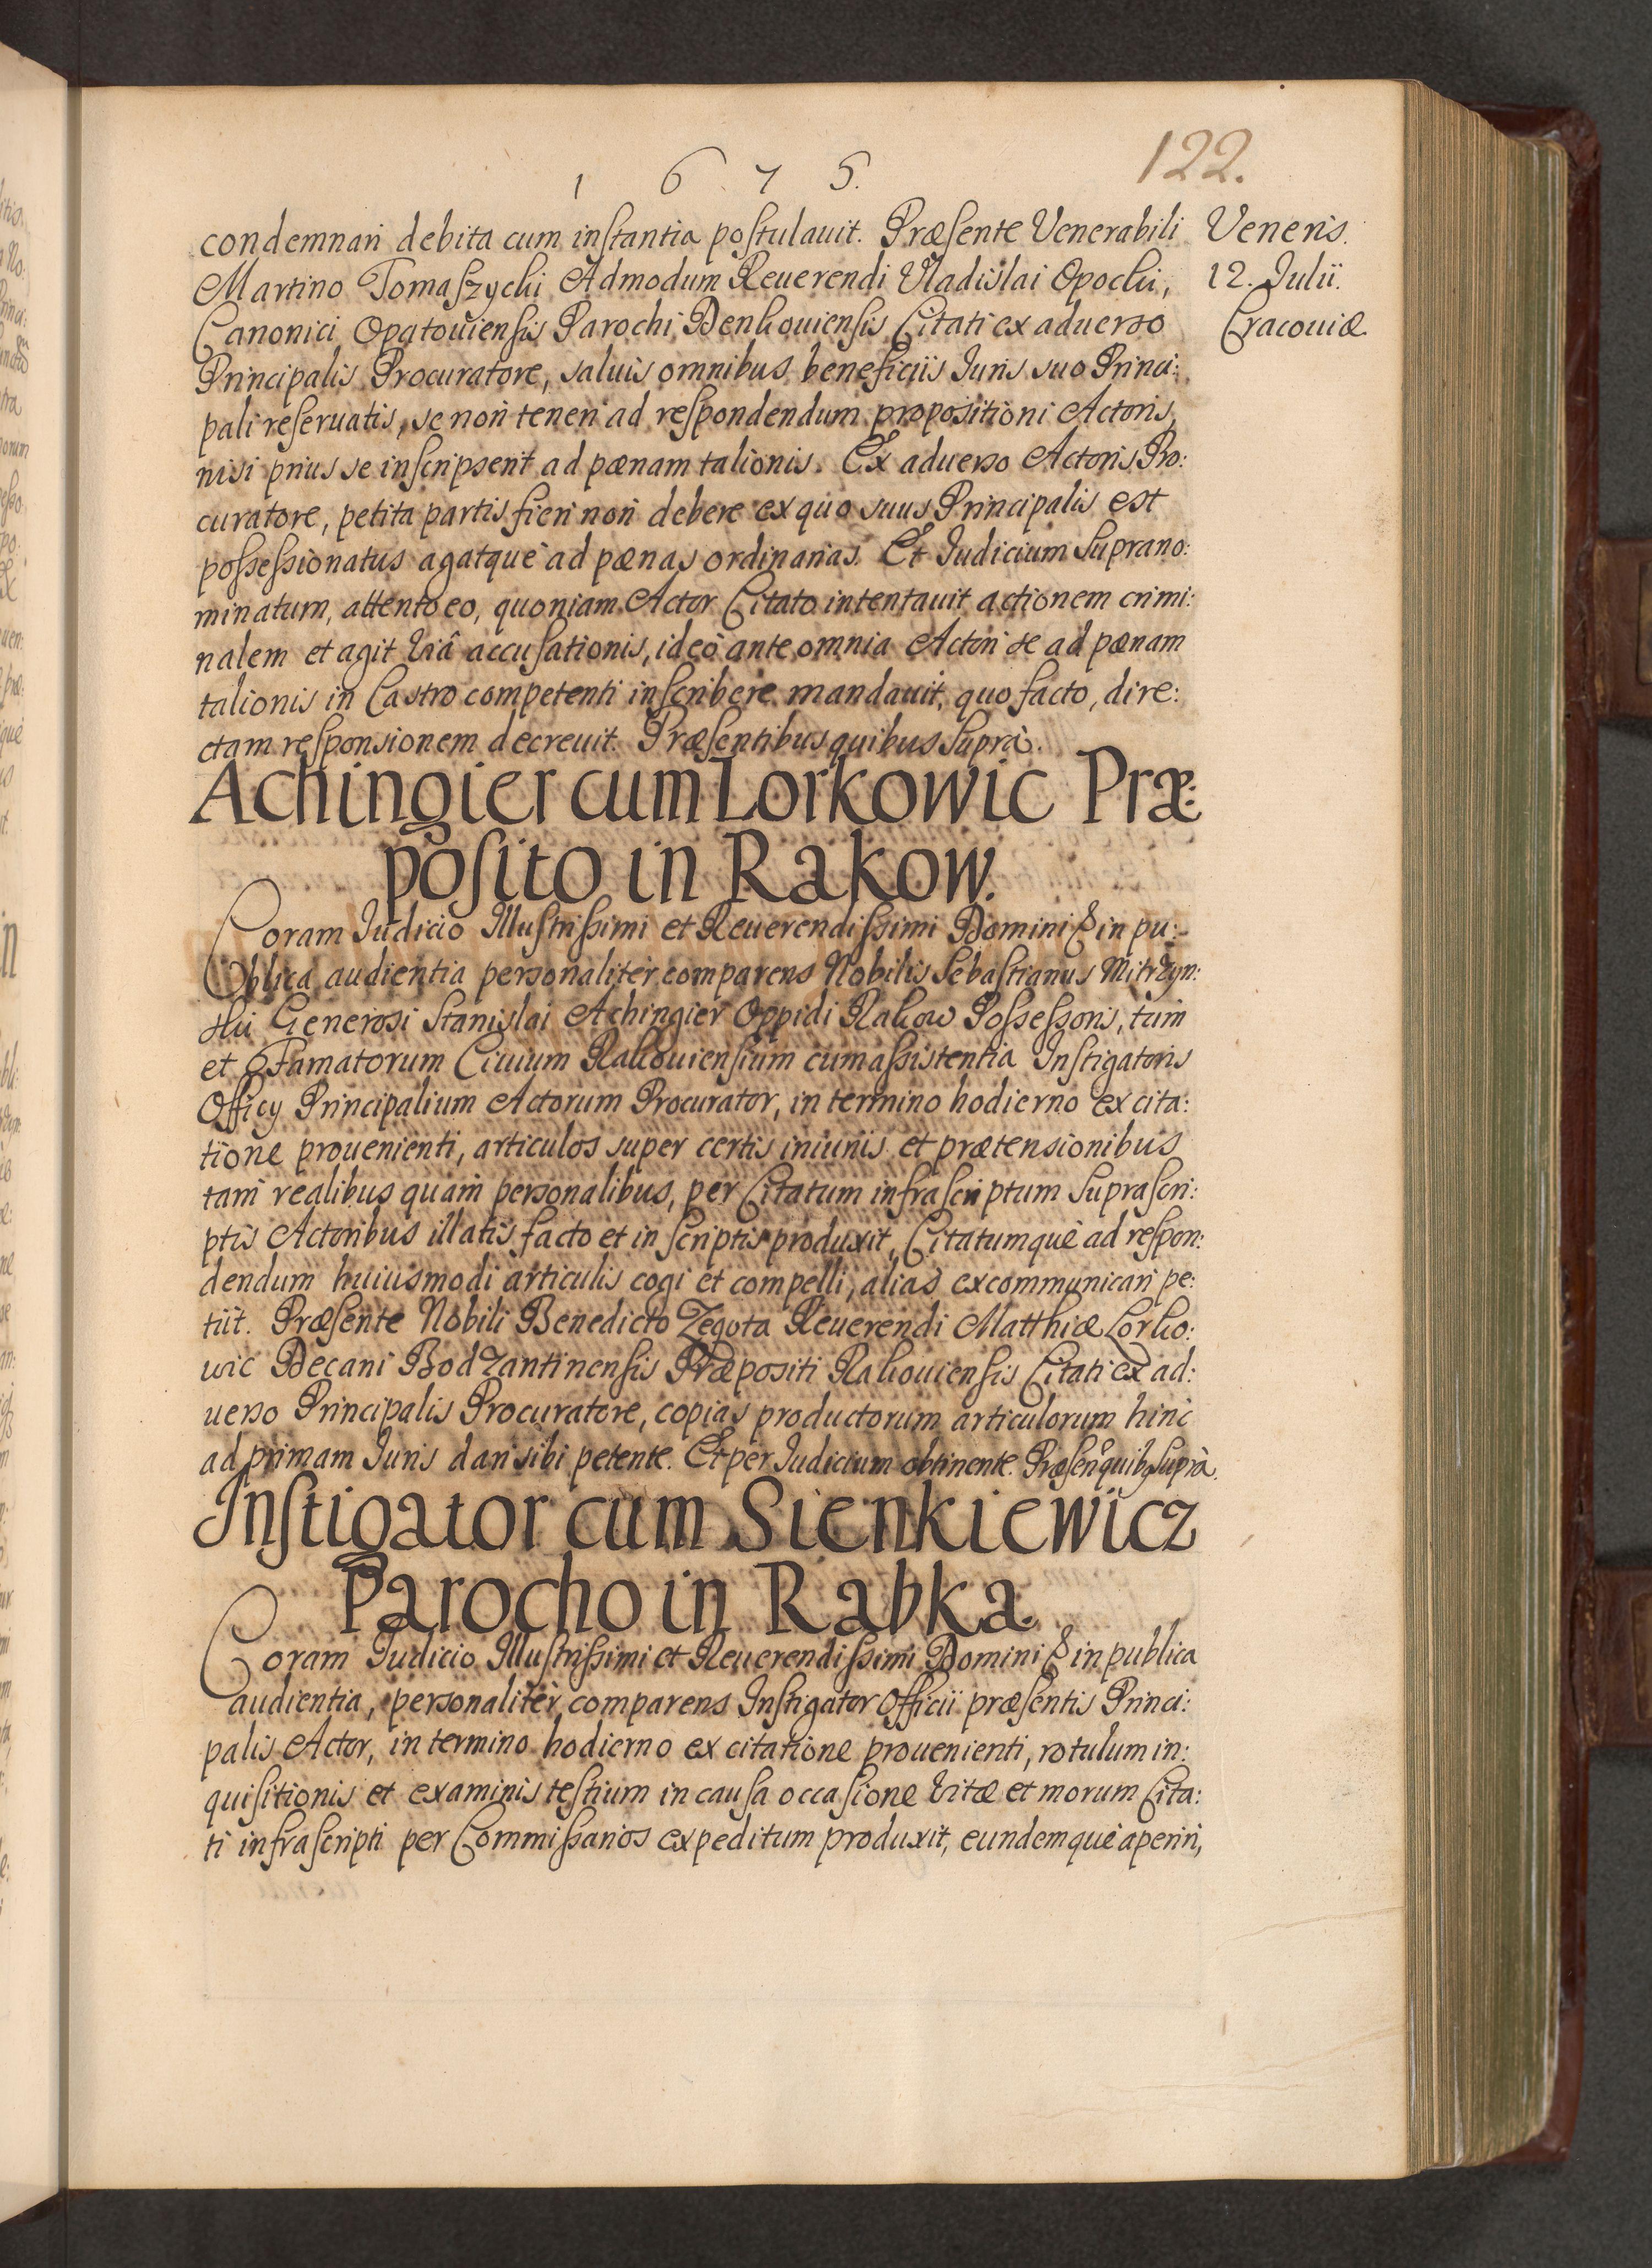 1 6 7 5.
122.
condemnari debita cum inſtantia poſtulauit. Præſente Venerabili
Martino Tomaſzycki Admodum Reuerendi Vladislai Opocki,
Canonici Opatouiensis Parochi Denkouiensis Citati ex aduerso
Principalis Procuratore, saluis omnibus beneficiis Iuris suo Princi:
pali reſeruatis, se non teneri ad reſpondendum propositioni Actoris,
nisi prius se inſcripserit ad pœnam talionis. Ex aduerso Actoris Pro:
curatore, petita partis fieri non debere ex quo suus Principalis est
poſseſsionatus agatque ad pœnas ordinarias. Et Iudicium Suprano:
minatum, attento eo, quoniam Actor Citato intentauit actionem crimi:
nalem et agit viâ accuſationis, ideo ante omnia Actori se ad pœnam
talionis in Castro competenti inſcribere mandauit, quo facto, dire:
ctam reſponsionem decreuit. Præſentibus quibus Supra.
Veneris.
12. Julii.
Cracouiæ
Achingier cum Lorkowic Præ:
poſito in Rakow.
Coram Iudicio Illuſtriſsimi et Reuerendiſsimi Domini & in pu:
blica audientia personaliter comparens Nobilis Sebaſtianus Mitrzyn:
ski Generosi Stanislai Achingier Oppidi Rakow Poſseſsoris, tum
et Famatorum Ciuium Rakouienſium cum aſsistentia Inſtigatoris
Officy Principalium Actorum Procurator, in termino hodierno ex cita:
tione prouenienti, articulos super certis iniuriis et prætensionibus
tam realibus quam personalibus, per Citatum infraſcriptum Supraſcri:
ptis Actoribus illatis facto et in ſcriptis produxit, Citatumque ad reſpon:
dendum huiusmodi articulis cogi et compelli, alias excommunicari pe:
tiit. Præſente Nobili Benedicto Zegota Reuerendi Matthiæ Lorko:
wic Decani Bodzantinenſis Præpositi Rakouienſis Citati ex ad:
uerso Principalis Procuratore, copias productorum articulorum hinc
ad primam Iuris dari sibi petente. Et per Iudicium obtinente. Præſen quib Supra.
Inſtigator cum Sienkiewicz
Parocho in Rabka.
Coram Iudicio Illuſtriſsimi et Reuerendiſsimi Domini & in publica
audientia, personaliter comparens Inſtigator Officii præſentis Princi:
palis Actor, in termino hodierno ex citatione prouenienti, rotulum in:
quiſitionis et examinis teſtium in cauſa occaſione vitæ et morum Cita:
ti infraſcripti per Commiſsarios expeditum produxit, eundemque aperiri,